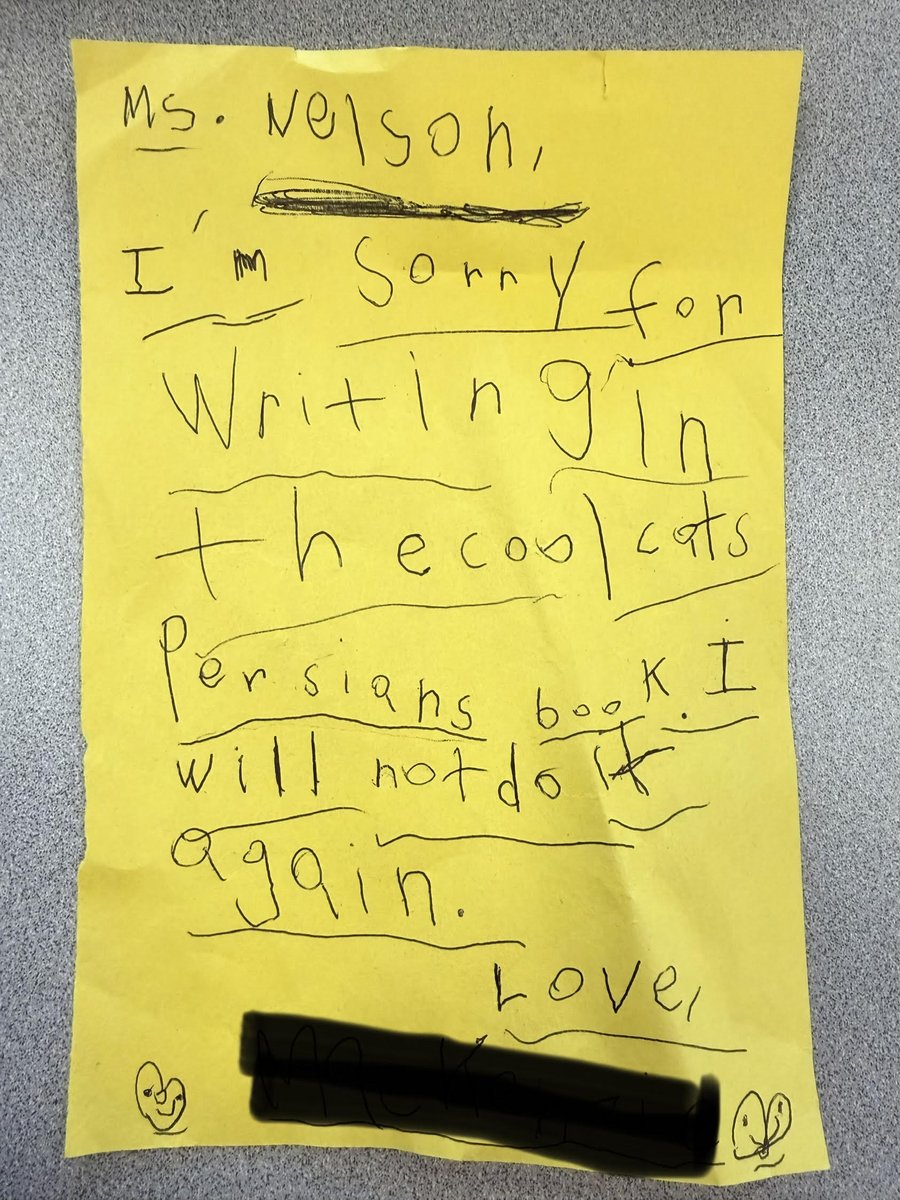 Ms. Nelson,
I'm sorry for
Writing in
the cool cats
Persians book. I
will not do it
again.
Love,